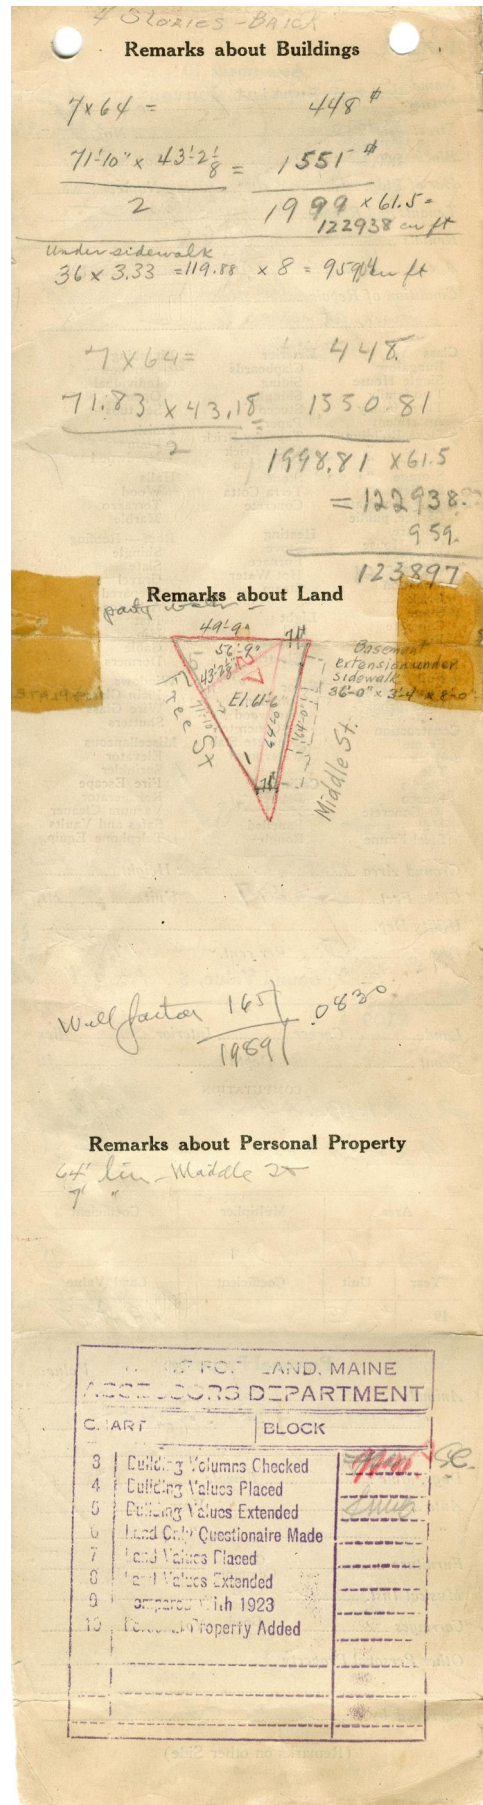 4 Stories - Brick
Remarks about Buildings
7x64 = 448 #
71'-10" x 43'-2 1/8 = 1551 #
2 1999 x 61.5 =
122938 cu ft
Under sidewalk
36 x 3.33 = 119.88 x 8 = 959 cu ft
7 x 64 = 448.
71.83 x 43.18 = 1550.81
2
1998.81 x 61.5
= 122938.
959.
123897
Remarks about Land
party walls
49'-9"
56'-9"
7'
43'-2 1/8
27
Basement
extension under
sidewalk
36'-0" x 3'-4" x 8'-0"
El. 61-6
71'-10"
64'-0"
64'-0"
Free St
Middle St.
7'
Wall factor 165 .0830
1989
Remarks about Personal Property
64' lin - Middle St
7' "
LAND, MAINE
ASSESSORS DEPARTMENT
CHART BLOCK
3 Building Volumns Checked
4 Building Values Placed
5 Building Values Extended
6 Land Only Questionaire Made
7 Land Values Placed
8 Land Values Extended
9 Compared With 1923
10 Personal Property Added
(Remarks on other Side)